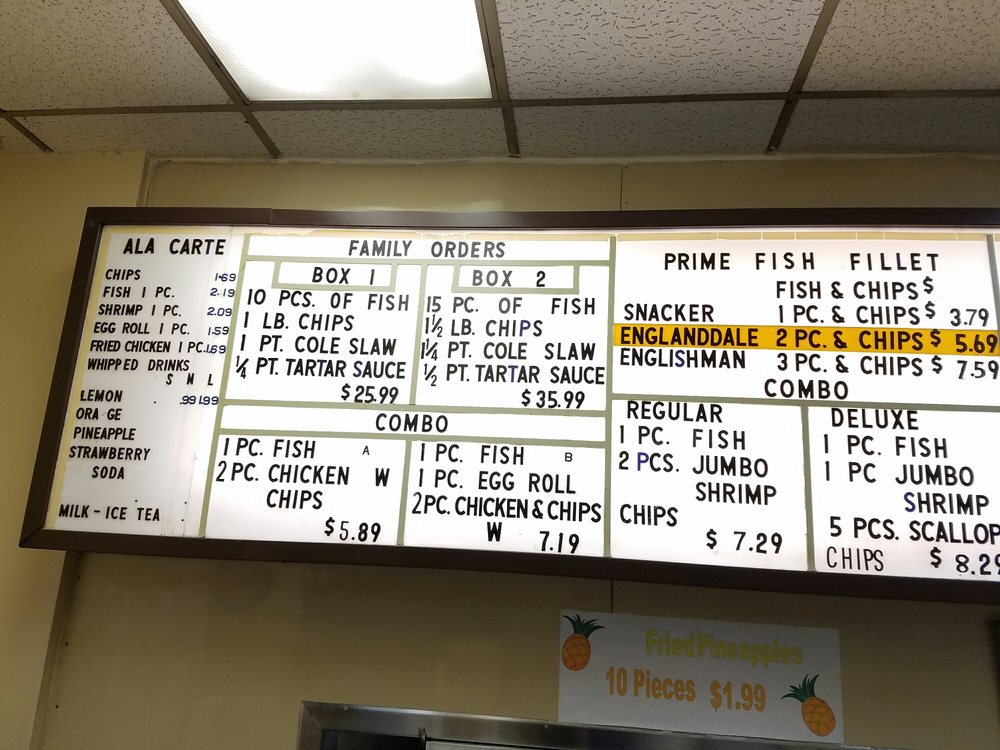 ALA CARTE
CHIPS 1.69
FISH 1 PC. 2.19
SHRIMP 1 PC. 2.09
EGG ROLL 1 PC. 1.59
FRIED CHICKEN 1 PC. 1.69
WHIPPED DRINKS
S M L
LEMON .99 1.99
ORA GE
PINEAPPLE
STRAWBERRY
SODA
MILK - ICE TEA
FAMILY ORDERS
BOX 1
10 PCS. OF FISH
1 LB. CHIPS
1 PT. COLE SLAW
¼ PT. TARTAR SAUCE
$25.99
BOX 2
15 PC. OF FISH
1½ LB. CHIPS
1¼ PT. COLE SLAW
½ PT. TARTAR SAUCE
$35.99
COMBO
1 PC. FISH A
2 PC. CHICKEN W
CHIPS
$5.89
1 PC. FISH B
1 PC. EGG ROLL
2PC. CHICKEN & CHIPS
W 7.19
PRIME FISH FILLET
FISH & CHIPS $
SNACKER 1 PC. & CHIPS $ 3.79
ENGLANDDALE 2 PC. & CHIPS $ 5.69
ENGLISHMAN 3 PC. & CHIPS $ 7.59
COMBO
REGULAR
1 PC. FISH
2 PCS. JUMBO
SHRIMP
CHIPS
$ 7.29
DELUXE
1 PC. FISH
1 PC JUMBO
SHRIMP
5 PCS. SCALLOP
CHIPS $ 8.29
Fried Pineapples
10 Pieces $1.99